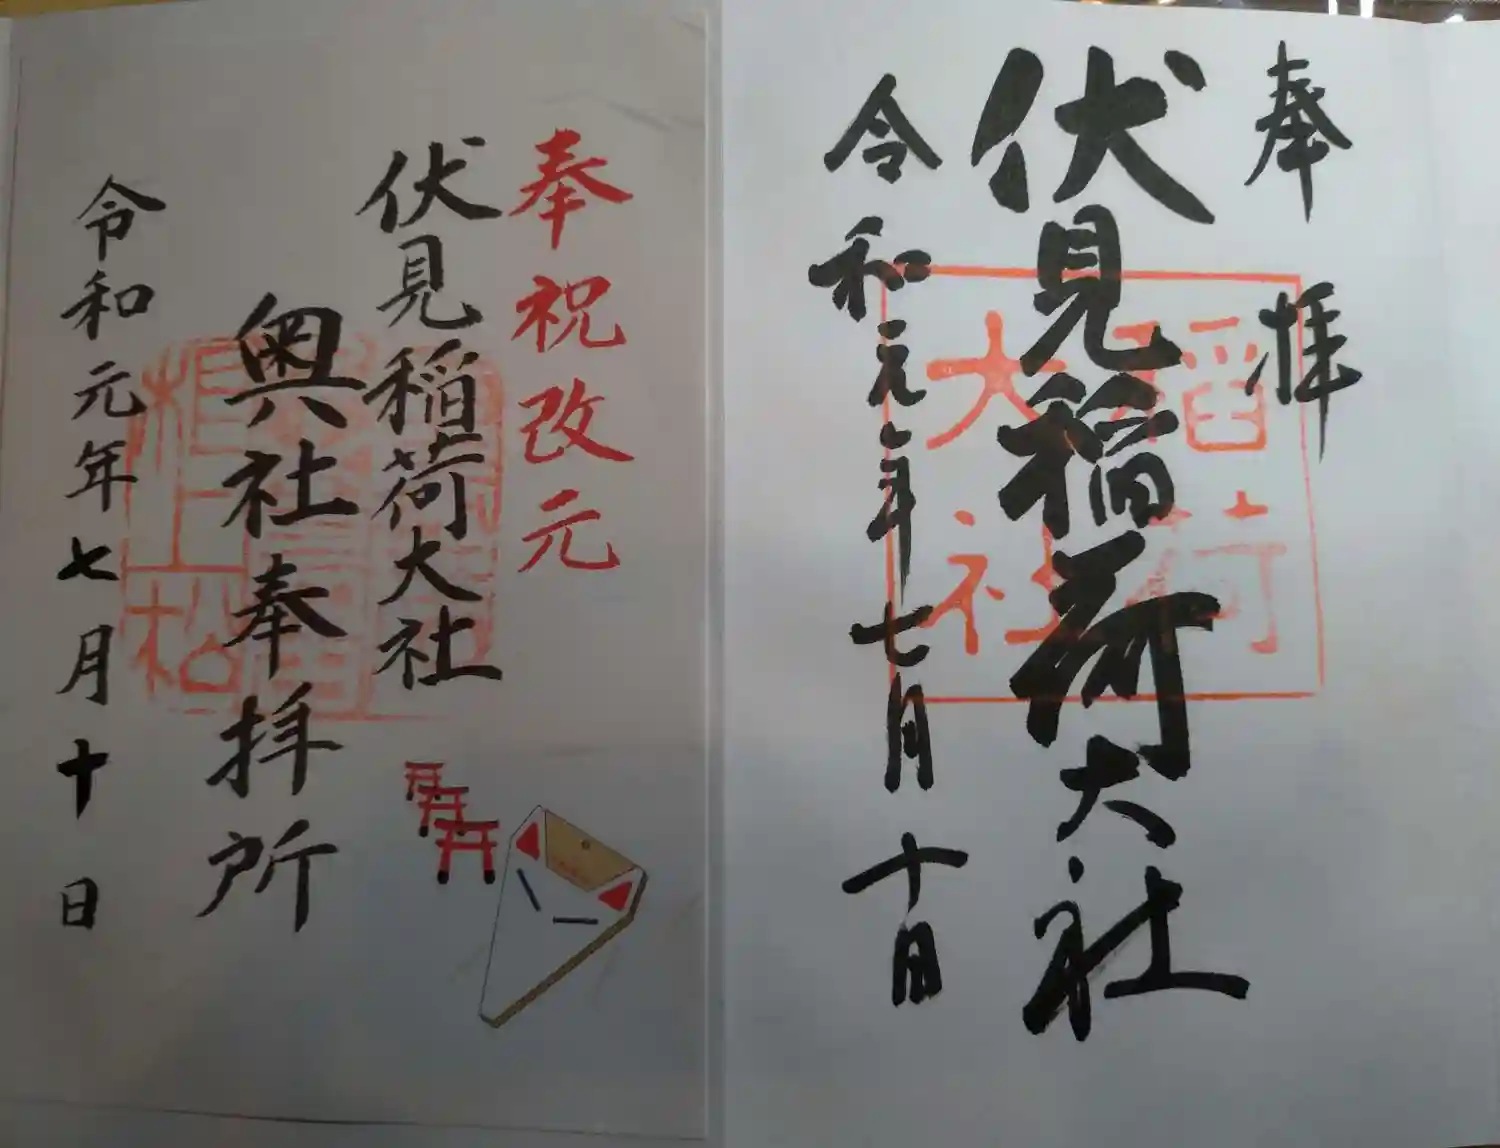 奉拝
伏見稲荷大社
令和元年七月十日
稲荷
大社
奉祝改元
伏見稲荷大社
奥社奉拝所
令和元年七月十日